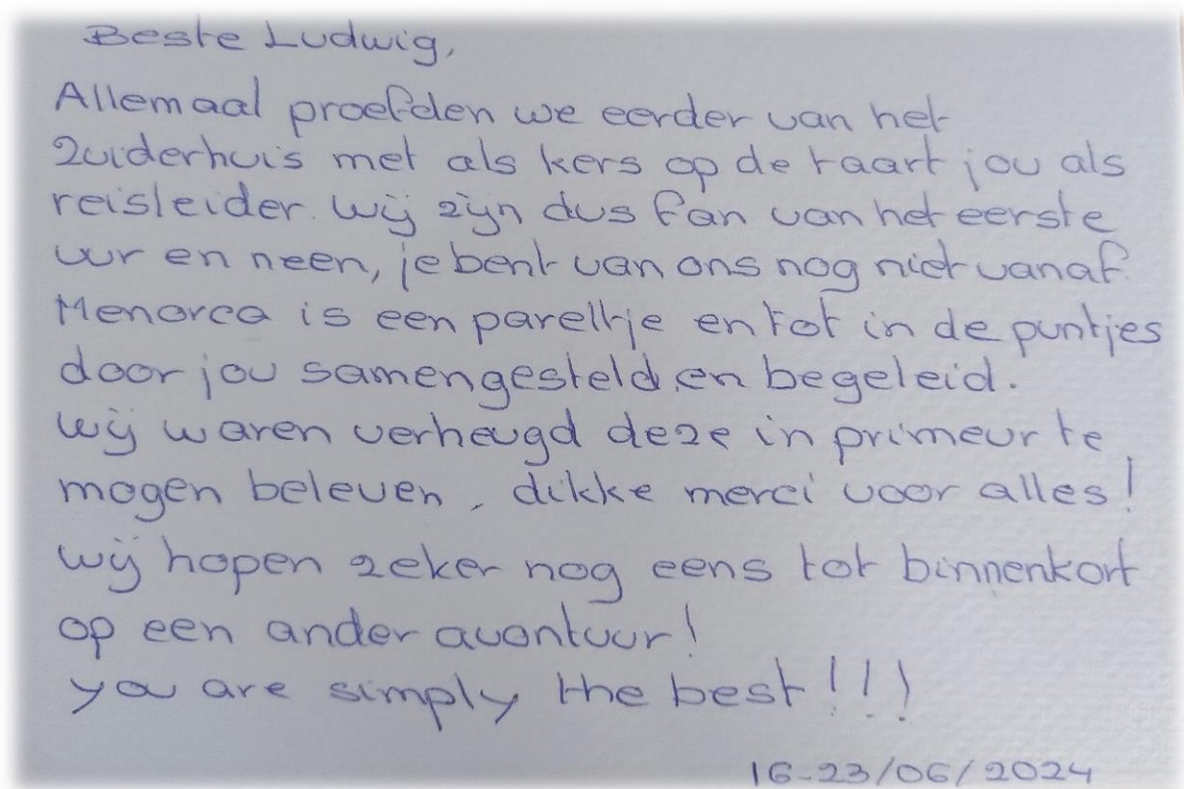 Beste Ludwig,
Allemaal proefden we eerder van het
Zuiderhuis met als kers op de taart jou als
reisleider. Wij zijn dus fan van het eerste
uur en neen, je bent van ons nog niet vanaf.
Menorca is een pareltje en tot in de puntjes
door jou samengesteld en begeleid.
Wij waren verheugd deze in primeur te
mogen beleven, dikke merci voor alles!
Wij hopen zeker nog eens tot binnenkort
op een ander avontuur!
you are simply the best!!!
16-23/06/2024